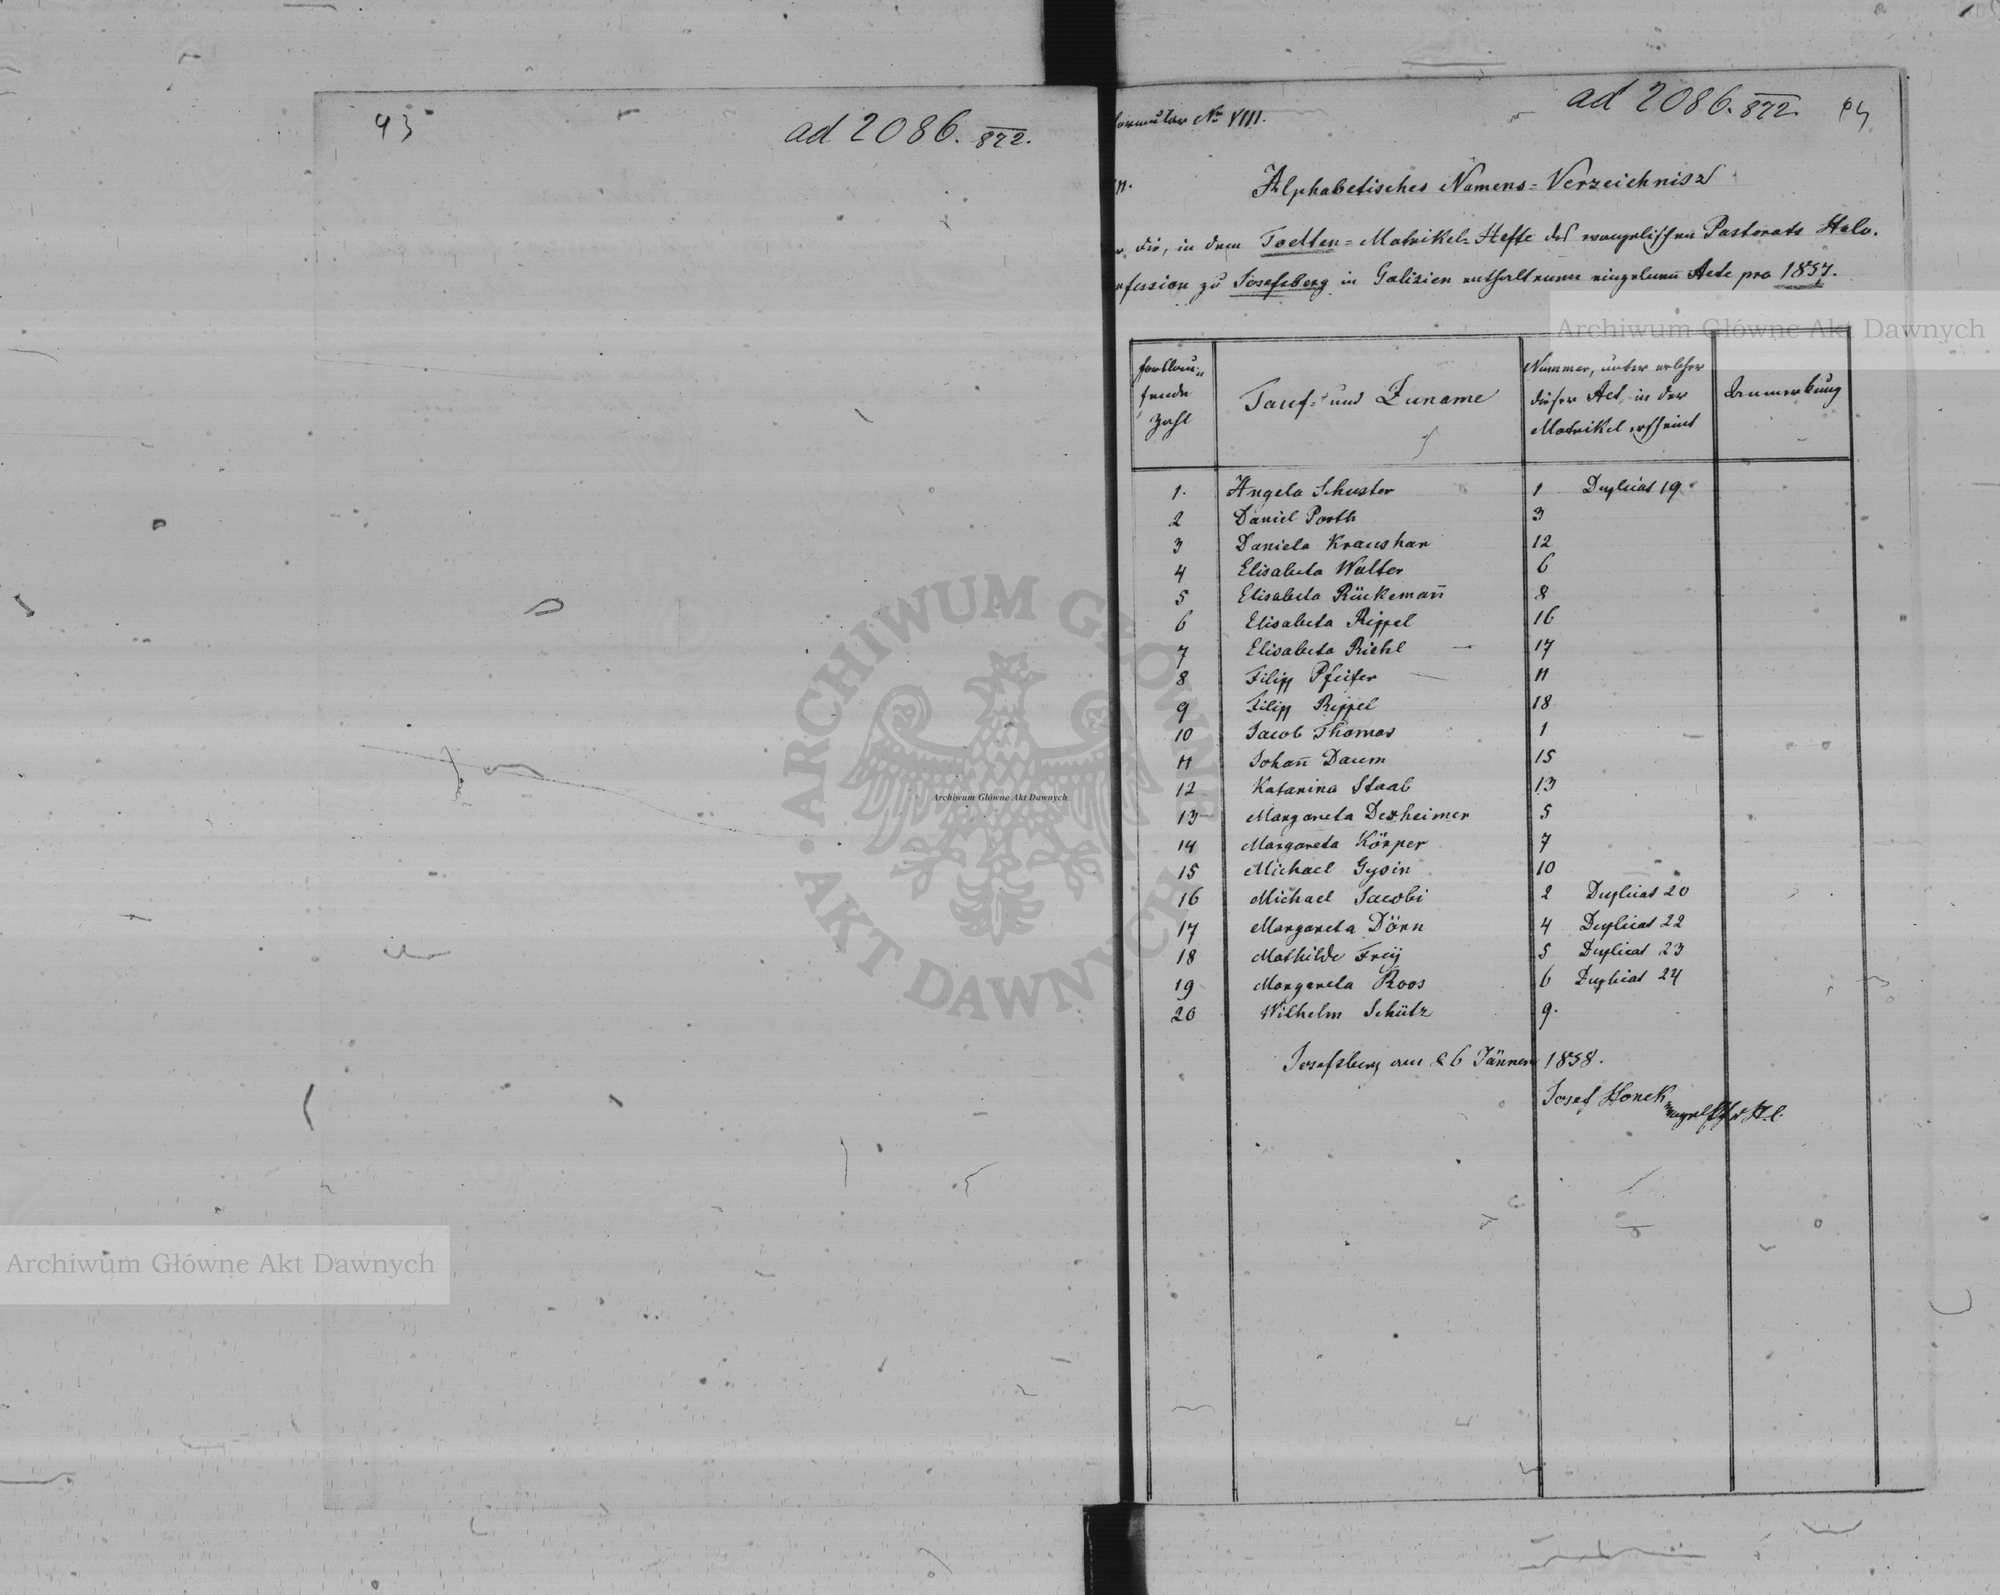 93
ad 2086. 872.
ad 2086. 872. 94
Formular No VIII.
Alphabetisches Namens-Verzeichnisz
die, in dem Todten-Matrikel-Hefte des evangelischen Pastorats Helv.
zu Josefsberg in Galizien enthaltenen einzelnen Acte pro 1857.
fortlau-
fende
Zahl
Tauf- und Zuname
Nummer, unter welcher
dieser Act, in der
Matrikel erscheint
Anmerkung
1. Angela Schuster 1 Duplicat 19
2 Daniel Porth 3
3 Daniela Kraushar 12
4 Elisabeta Walter 6
5 Elisabeta Rückemañ 8
6 Elisabeta Rippel 16
7 Elisabeta Riehl 17
8 Filipp Pfeifer 11
9 Filipp Rippel 18
10 Jacob Thomas 1
11 Johañ Daum 15
12 Katarina Staab 13
13 Margareta Dexheimer 5
14 Margareta Körper 7
15 Michael Gysin 10
16 Michael Jacobi 2 Duplicat 20
17 Margareta Dörn 4 Duplicat 22
18 Mathilde Freÿ 5 Duplicat 23
19 Margareta Roos 6 Duplicat 24
20 Wilhelm Schütz 9.
Josefsberg am 26 Jänner 1858.
Josef Honek
Archiwum Główne Akt Dawnych
ARCHIWUM GŁÓWNE AKT DAWNYCH
Archiwum Główne Akt Dawnych
Archiwum Główne Akt Dawnych